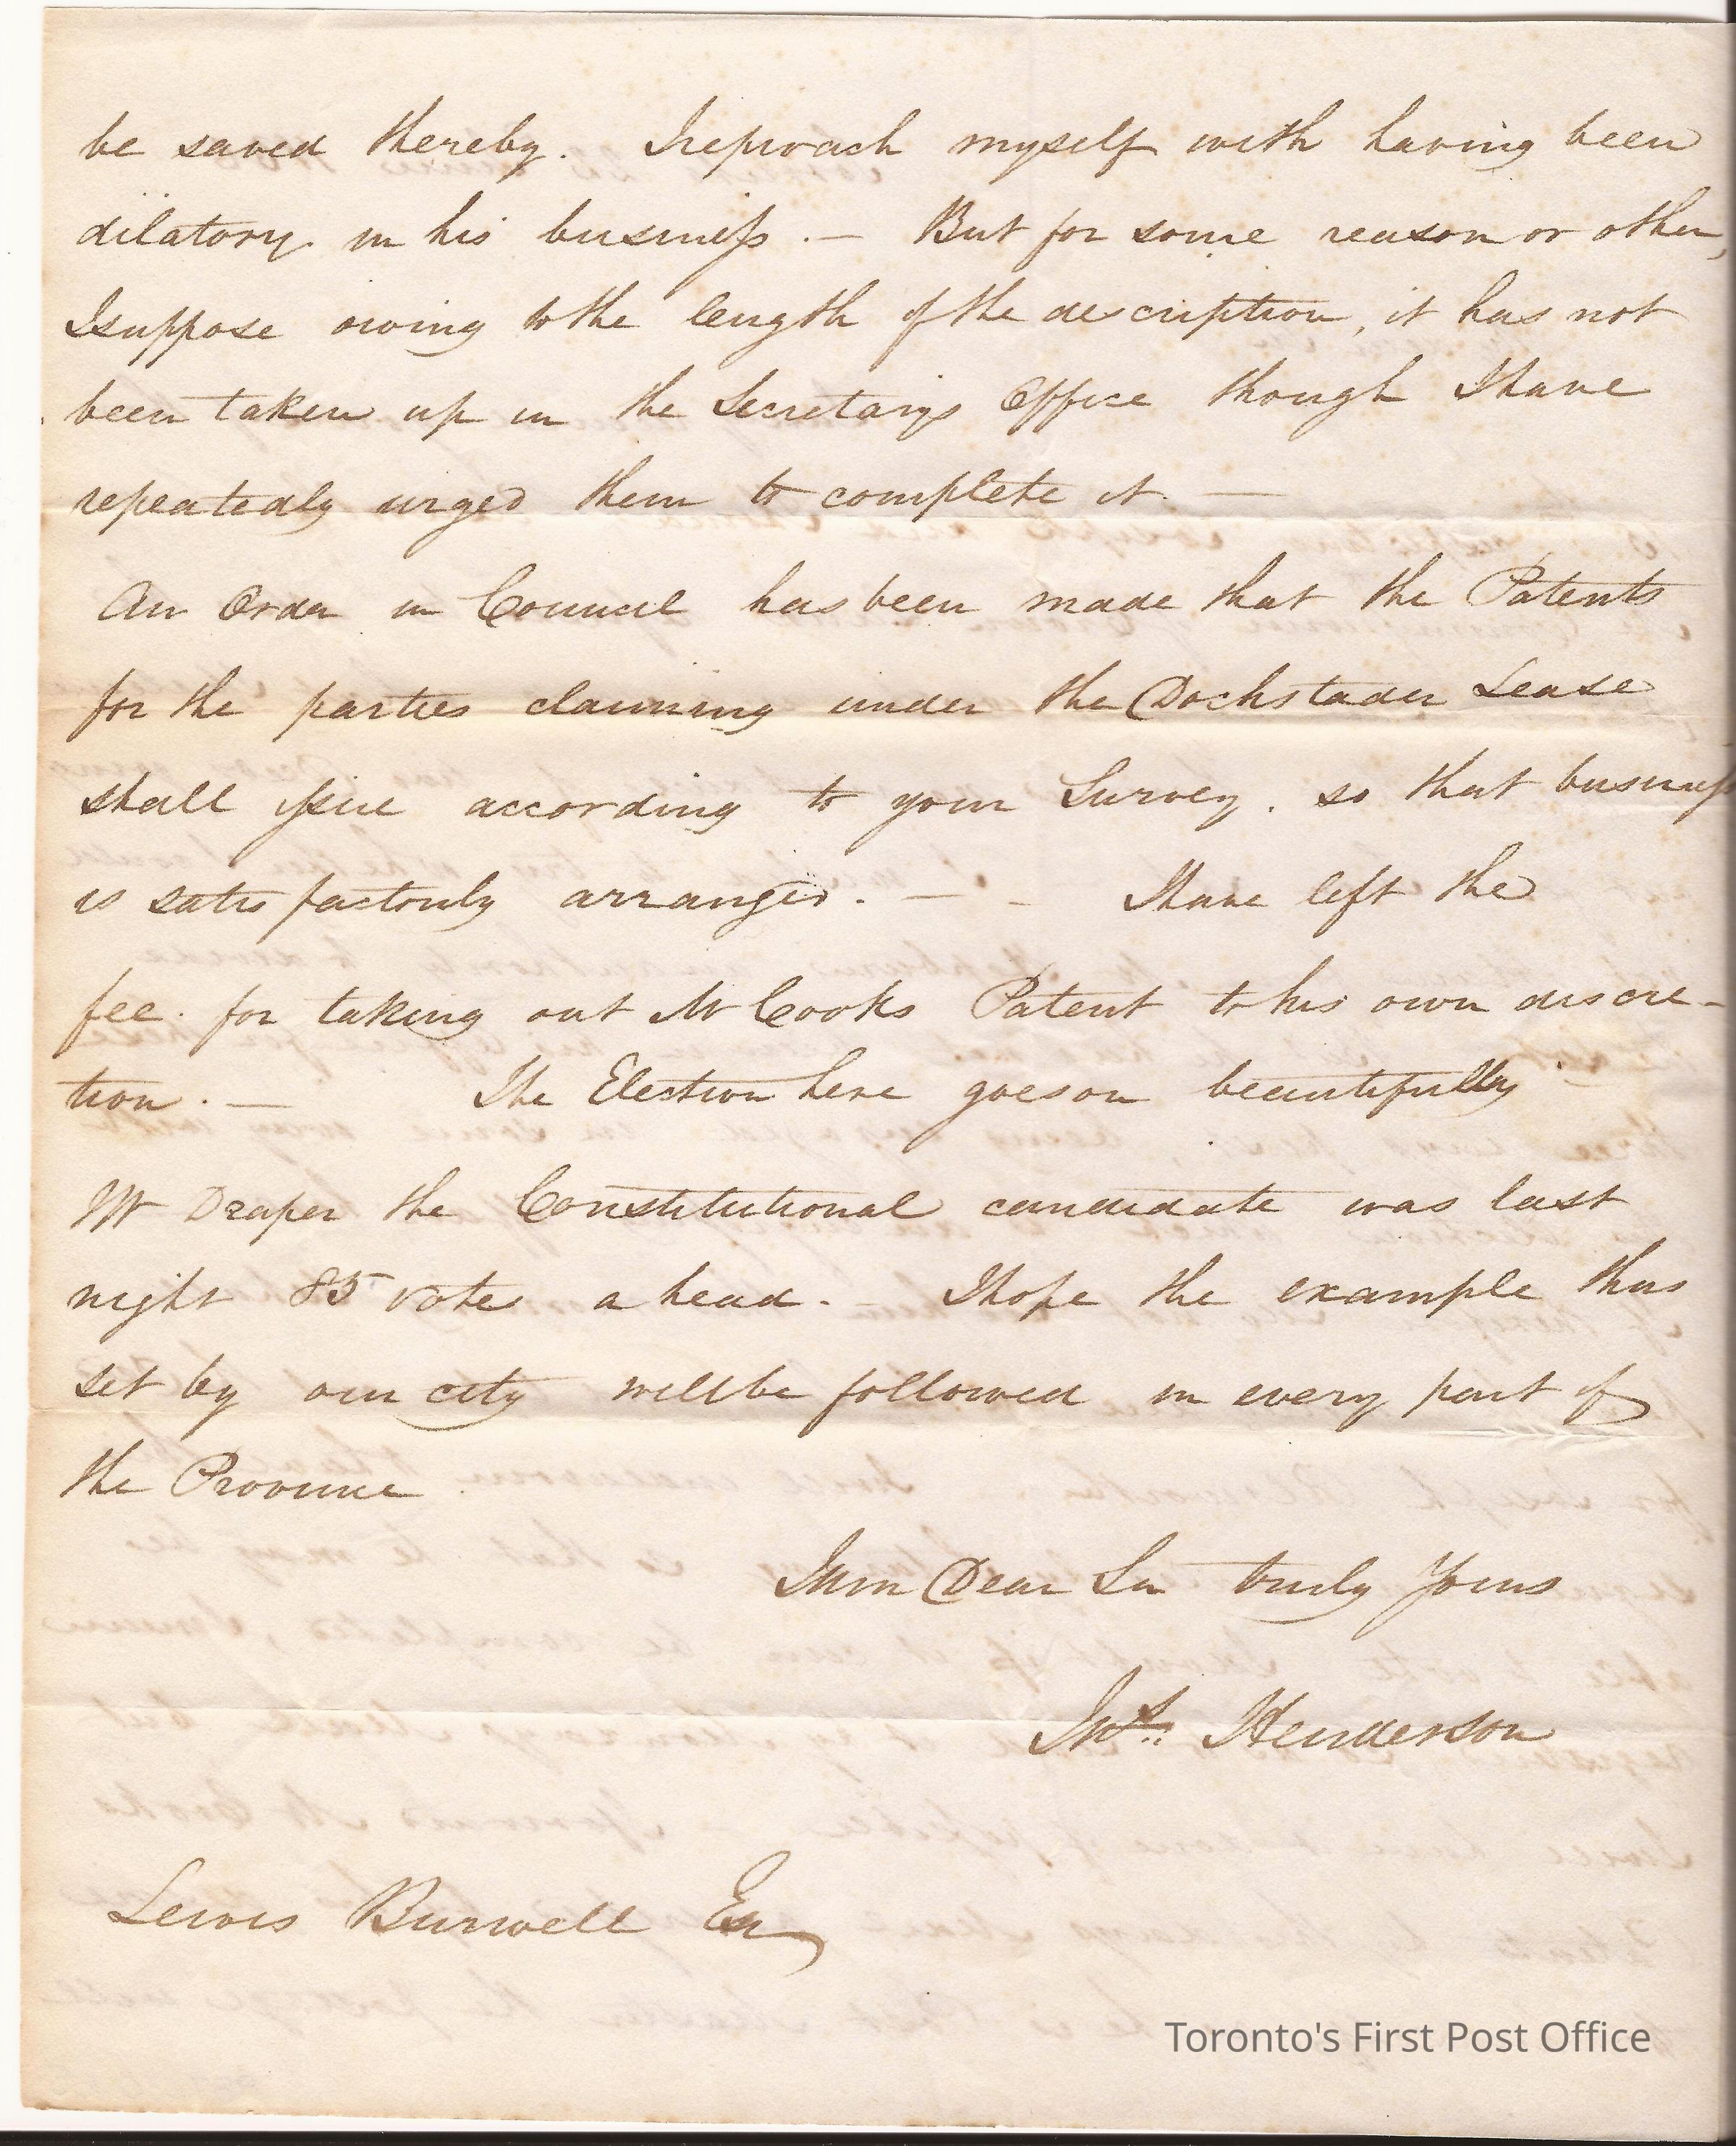 be saved thereby. I reproach myself with having been
dilatory in his business. — But for some reason or other,
I suppose owing to the length of the description, it has not
been taken up in the Secretarys Office though I have
repeatedly urged them to complete it. —
An Order in Council has been made that the Patents
for the parties claiming under the Dochstader Lease
shall issue according to your Survey. so that business
is satisfactorily arranged. — - I have left the
fee. for taking out Mr Cooks Patent to his own discre-
tion. — The Election here goes on beautifully
Mr Draper the Constitutional candidate was last
night 85 votes a head. - I hope the example thus
set by our city will be followed in every part of
the Province.
I am Dear Sir truly Yours
Henderson
Lewis Burwell Esq
Toronto's First Post Office